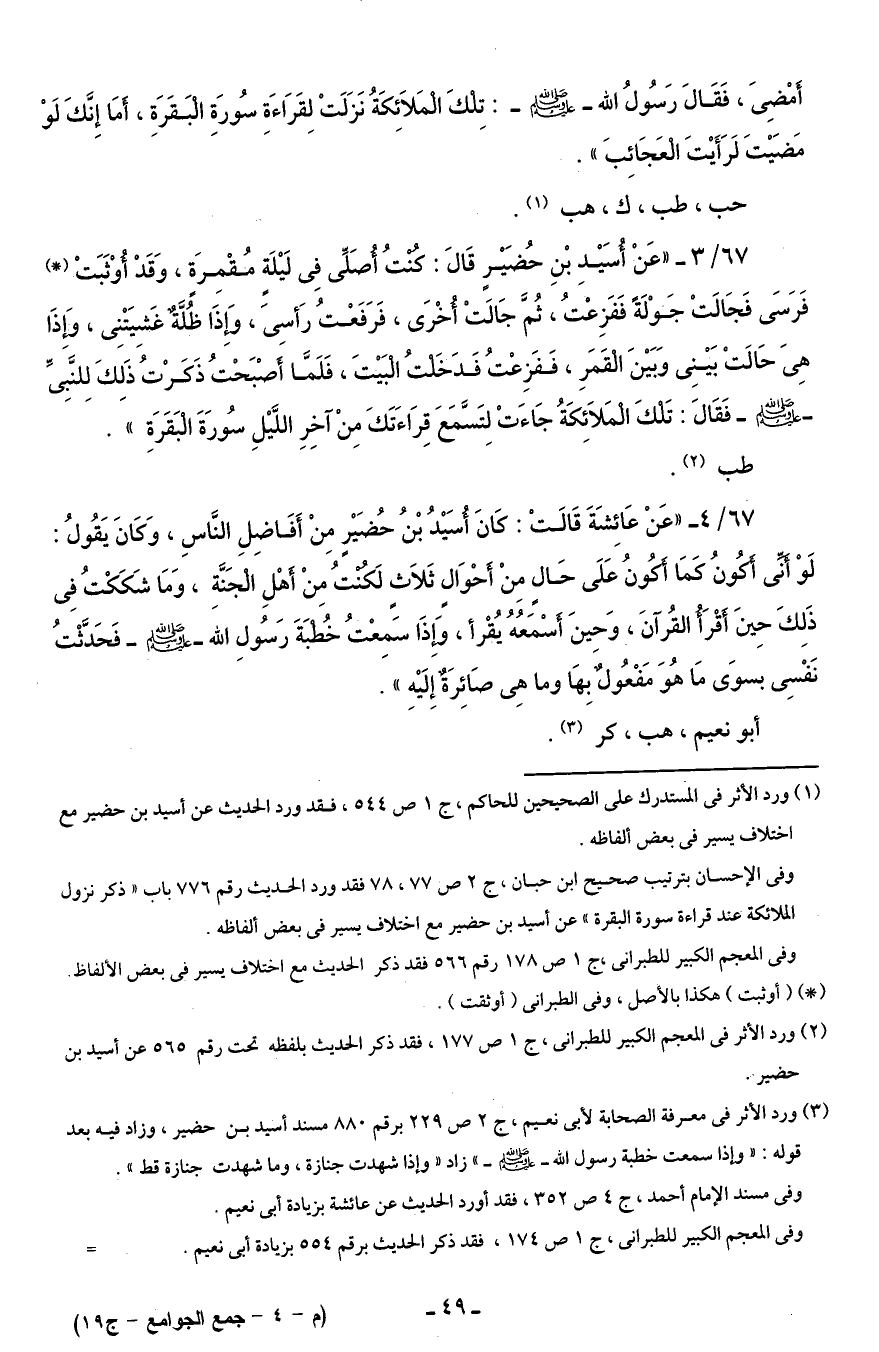 أَمْضِىَ ، فَقَالَ رَسُولُ الله ـ ﷺ ـ : تِلْكَ الْمَلاَئِكَةُ نَزَلَتْ لِقَرَاءَةِ سُورَةِ الْبَقَرَةِ ، أَمَا إِنَّكَ لَوْ
مَضَيْتَ لَرَأَيْتَ الْعَجَائِبَ » .
حب ، طب ، ك ، هب (١) .
٦٧/ ٣ ـ «عَنْ أُسَيْدِ بْنِ حُضَيْرٍ قَالَ : كُنْتُ أُصَلِّى فِى لَيْلَةٍ مُقْمِرَةٍ ، وَقَدْ أُوْثَبَتْ (*)
فَرَسَى فَجَالَتْ جَوْلَةً فَفَزِعْتُ ، ثُمَّ جَالَتْ أُخْرَى ، فَرَفَعْتُ رَأسِىَ ، وَإِذَا ظُلَّةٌ غَشِيَتْنِى ، وَإِذَا
هِىَ حَالَتْ بَيْنِى وَبَيْنَ الْقَمَرِ ، فَفَزِعْتُ فَدَخَلْتُ الْبَيْتَ ، فَلَمَّا أَصْبَحْتُ ذَكَرْتُ ذَلِكَ لِلنَّبِىِّ
ـ ﷺ ـ فَقَالَ : تَلْكَ الْمَلاَئِكَةُ جَاءَتْ لِتَسَّمَعَ قِرَاءَتَكَ مِنْ آخِرِ اللَّيْلِ سُورَةَ الْبَقَرَةِ » .
طب (٢) .
٦٧/ ٤ـ «عَنْ عَائِشَةَ قَالَتْ : كَانَ أُسَيْدُ بْنُ حُضَيْرٍ مِنْ أَفَاضِلِ النَّاسِ ، وَكَانَ يَقُولُ :
لَوْ أَنِّى أَكُونُ كَمَا أَكُونُ عَلَى حَالٍ مِنْ أَحْوَالٍ ثَلاَثٍ لَكُنْتُ مِنْ أَهْلِ الْجَنَّةِ ، وَمَا شَكَكْتُ فِى
ذَلِكَ حِينَ أَقْرَأُ القُرآنَ ، وَحِينَ أَسْمَعُهُ يُقْرأ ، وَإِذَا سَمِعْتُ خُطْبَةَ رَسُولِ الله ـ ﷺ ـ فَحَدَّثْتُ
نَفْسِى بِسوَى مَا هُوَ مَفْعُولٌ بِهَا وما هِى صَائِرَةٌ إِلَيْهِ » .
أبو نعيم ، هب ، كر (٣) .
(١) ورد الأثر فى المستدرك على الصحيحين للحاكم ، ج ١ ص ٥٤٤ ، فقد ورد الحديث عن أسيد بن حضير مع
اختلاف يسير فى بعض ألفاظه .
وفى الإحسان بترتيب صحيح ابن حبان ، ج ٢ ص ٧٧ ، ٧٨ فقد ورد الحديث رقم ٧٧٦ باب « ذكر نزول
الملائكة عند قراءة سورة البقرة » عن أسيد بن حضير مع اختلاف يسير فى بعض ألفاظه .
وفى المعجم الكبير للطبرانى ،ج ١ ص ١٧٨ رقم ٥٦٦ فقد ذكر الحديث مع اختلاف يسير فى بعض الألفاظ.
(*) ( أوثبت ) هكذا بالأصل ، وفى الطبرانى ( أوثقت ) .
(٢) ورد الأثر فى المعجم الكبير للطبرانى ، ج ١ ص ١٧٧ ، فقد ذكر الحديث بلفظه تحت رقم ٥٦٥ عن أسيد بن
حضير .
(٣) ورد الأثر فى معرفة الصحابة لأبى نعيم ، ج ٢ ص ٢٢٩ برقم ٨٨٠ مسند أسيد بن حضير ، وزاد فيه بعد
قوله : « وإذا سمعت خطبة رسول الله ـ ﷺ ـ » زاد « وإذا شهدت جنازة ، وما شهدت جنازة قط » .
وفى مسند الإمام أحمد ، ج ٤ ص ٣٥٢ ، فقد أورد الحديث عن عائشة بزيادة أبى نعيم .
وفى المعجم الكبير للطبرانى ، ج ١ ص ١٧٤ ، فقد ذكر الحديث برقم ٥٥٤ بزيادة أبى نعيم . =
ـ ٤٩ ـ
(م - ٤ - جمع الجوامع - ج١٩)